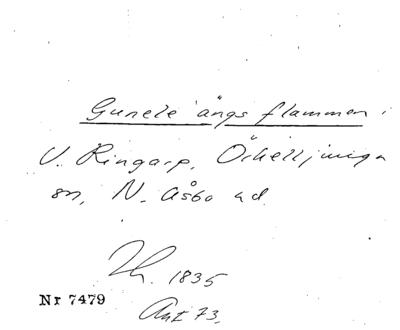 Gunele ängs flammen i
V. Ringarp, Örkelljunga
sn, N. Åsbo hd.
Th. 1835
Nr 7479
Ant 73.